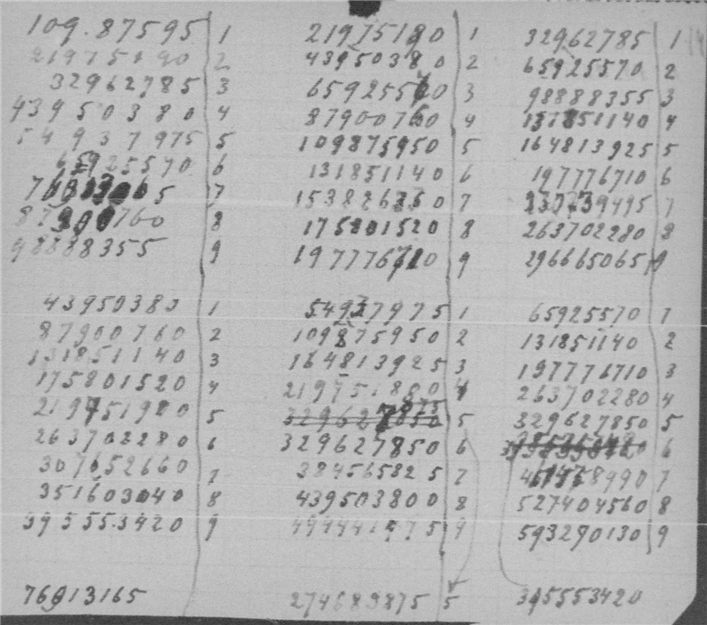 109.87595 1 21975180 1 32962785 1
21975190 2 43950380 2 65925570 2
32962785 3 65925560 3 98888355 3
43950380 4 87900760 4 131851140 4
54937975 5 109875950 5 164813925 5
65925570 6 131851140 6 197776710 6
7 153826760 7 7
760 8 175801520 8 263702280 8
98888355 9 197776710 9 296665065 9
43950380 1 54937975 1 65925570 1
87900760 2 109875950 2 131851140 2
131851140 3 164813925 3 197776710 3
175801520 4 219751800 4 263702280 4
219751980 5 5 329627850 5
263702280 6 329627850 6 6
307652660 7 384565825 7 7
351603040 8 439503800 8 527404560 8
395553420 9 494441975 9 593290130 9
76913165 274689875 5 395553420